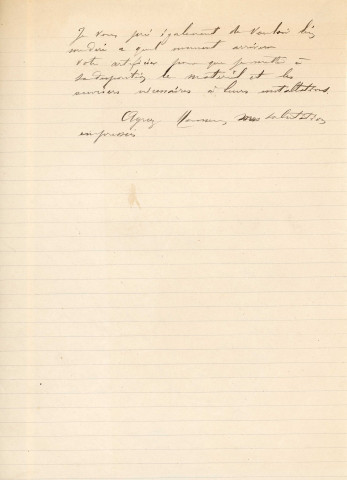 Je vous prie également de vouloir bien
me dire a quel moment arrivera
votre artificier pour que je mette à
sa disposition le matériel et les
ouvriers nécessaires à leurs installations.
Agréez Monsieur, mes salutations
empressées